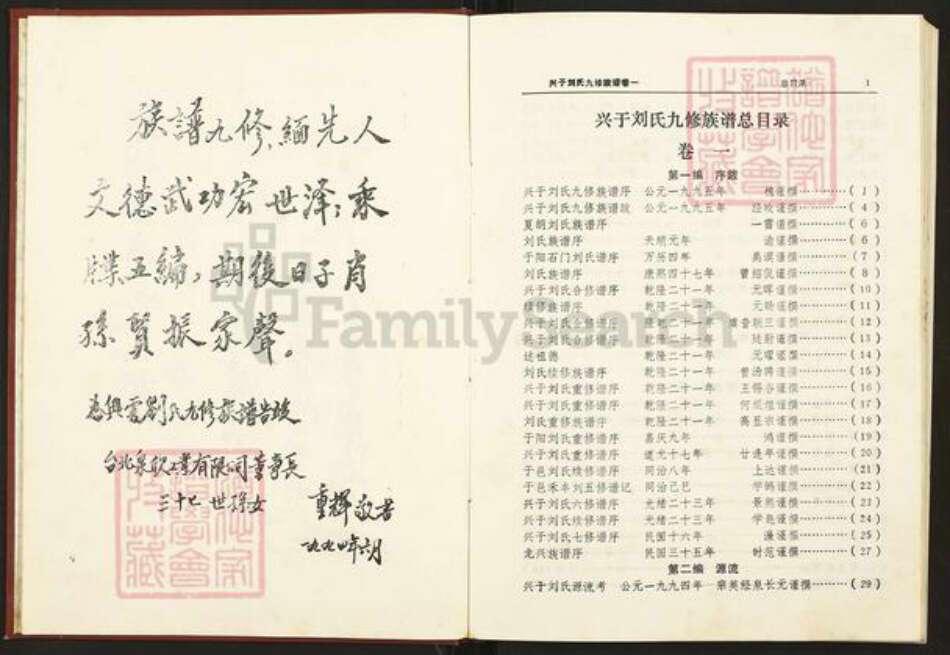 族譜九修,緬先人
文德武功宏世泽;乘
牒五續,期後日子肖
孫賢振家聲。
為興雩劉氏九修族譜告竣
台北 有限 司董事長
三十七世孫女
重輝敬書
一九九四年六月
兴于刘氏九修族谱卷一 总目录 1
兴于刘氏九修族谱总目录
卷一
第一编 序跋
兴于刘氏九修族谱序 公元一九九五年 谨撰…………( 1 )
兴于刘氏九修族谱跋 公元一九九五年 谨撰…………( 4 )
夏朗刘氏族谱序 一雷谨撰…………( 6 )
刘氏族谱序 天明元年 谨撰…………( 6 )
于阳石门刘氏谱序 万历四年 谨撰…………( 7 )
刘氏族谱序 康熙四十七年 谨撰…………( 8 )
兴于刘氏合修谱序 乾隆二十一年 元晖谨撰…………(10)
续修族谱序 乾隆二十一年 谨撰…………(11)
兴于刘氏合修谱序 乾隆二十一年 谨撰…………(12)
兴于刘氏合修谱序 乾隆二十一年 谨撰…………(13)
述祖德 乾隆二十一年 元曜谨撰…………(14)
刘氏续修族谱序 乾隆二十一年 谨撰…………(15)
兴于刘氏重修谱序 乾隆二十一年 谨撰…………(16)
兴于刘氏重修谱序 乾隆二十一年 谨撰…………(17)
刘氏重修族谱序 乾隆二十一年 谨撰…………(18)
于阳刘氏重修谱序 嘉庆九年 鸿谨撰…………(19)
兴于刘氏重修谱序 道光十七年 谨撰…………(20)
于邑刘氏续修谱序 同治八年 上达谨撰…………(21)
于邑禾丰刘五修谱记 同治己巳 谨撰…………(22)
兴于刘氏六修谱序 光绪二十三年 景熙谨撰…………(23)
兴于刘氏续修谱序 光绪二十三年 谨撰…………(24)
兴于刘氏七修谱序 民国十六年 谨撰…………(25)
龙兴族谱序 民国三十五年 时范谨撰…………(27)
第二编 源流
兴于刘氏源流考 公元一九九四年 宗英经泉长元谨撰………(29)
FamilySearch